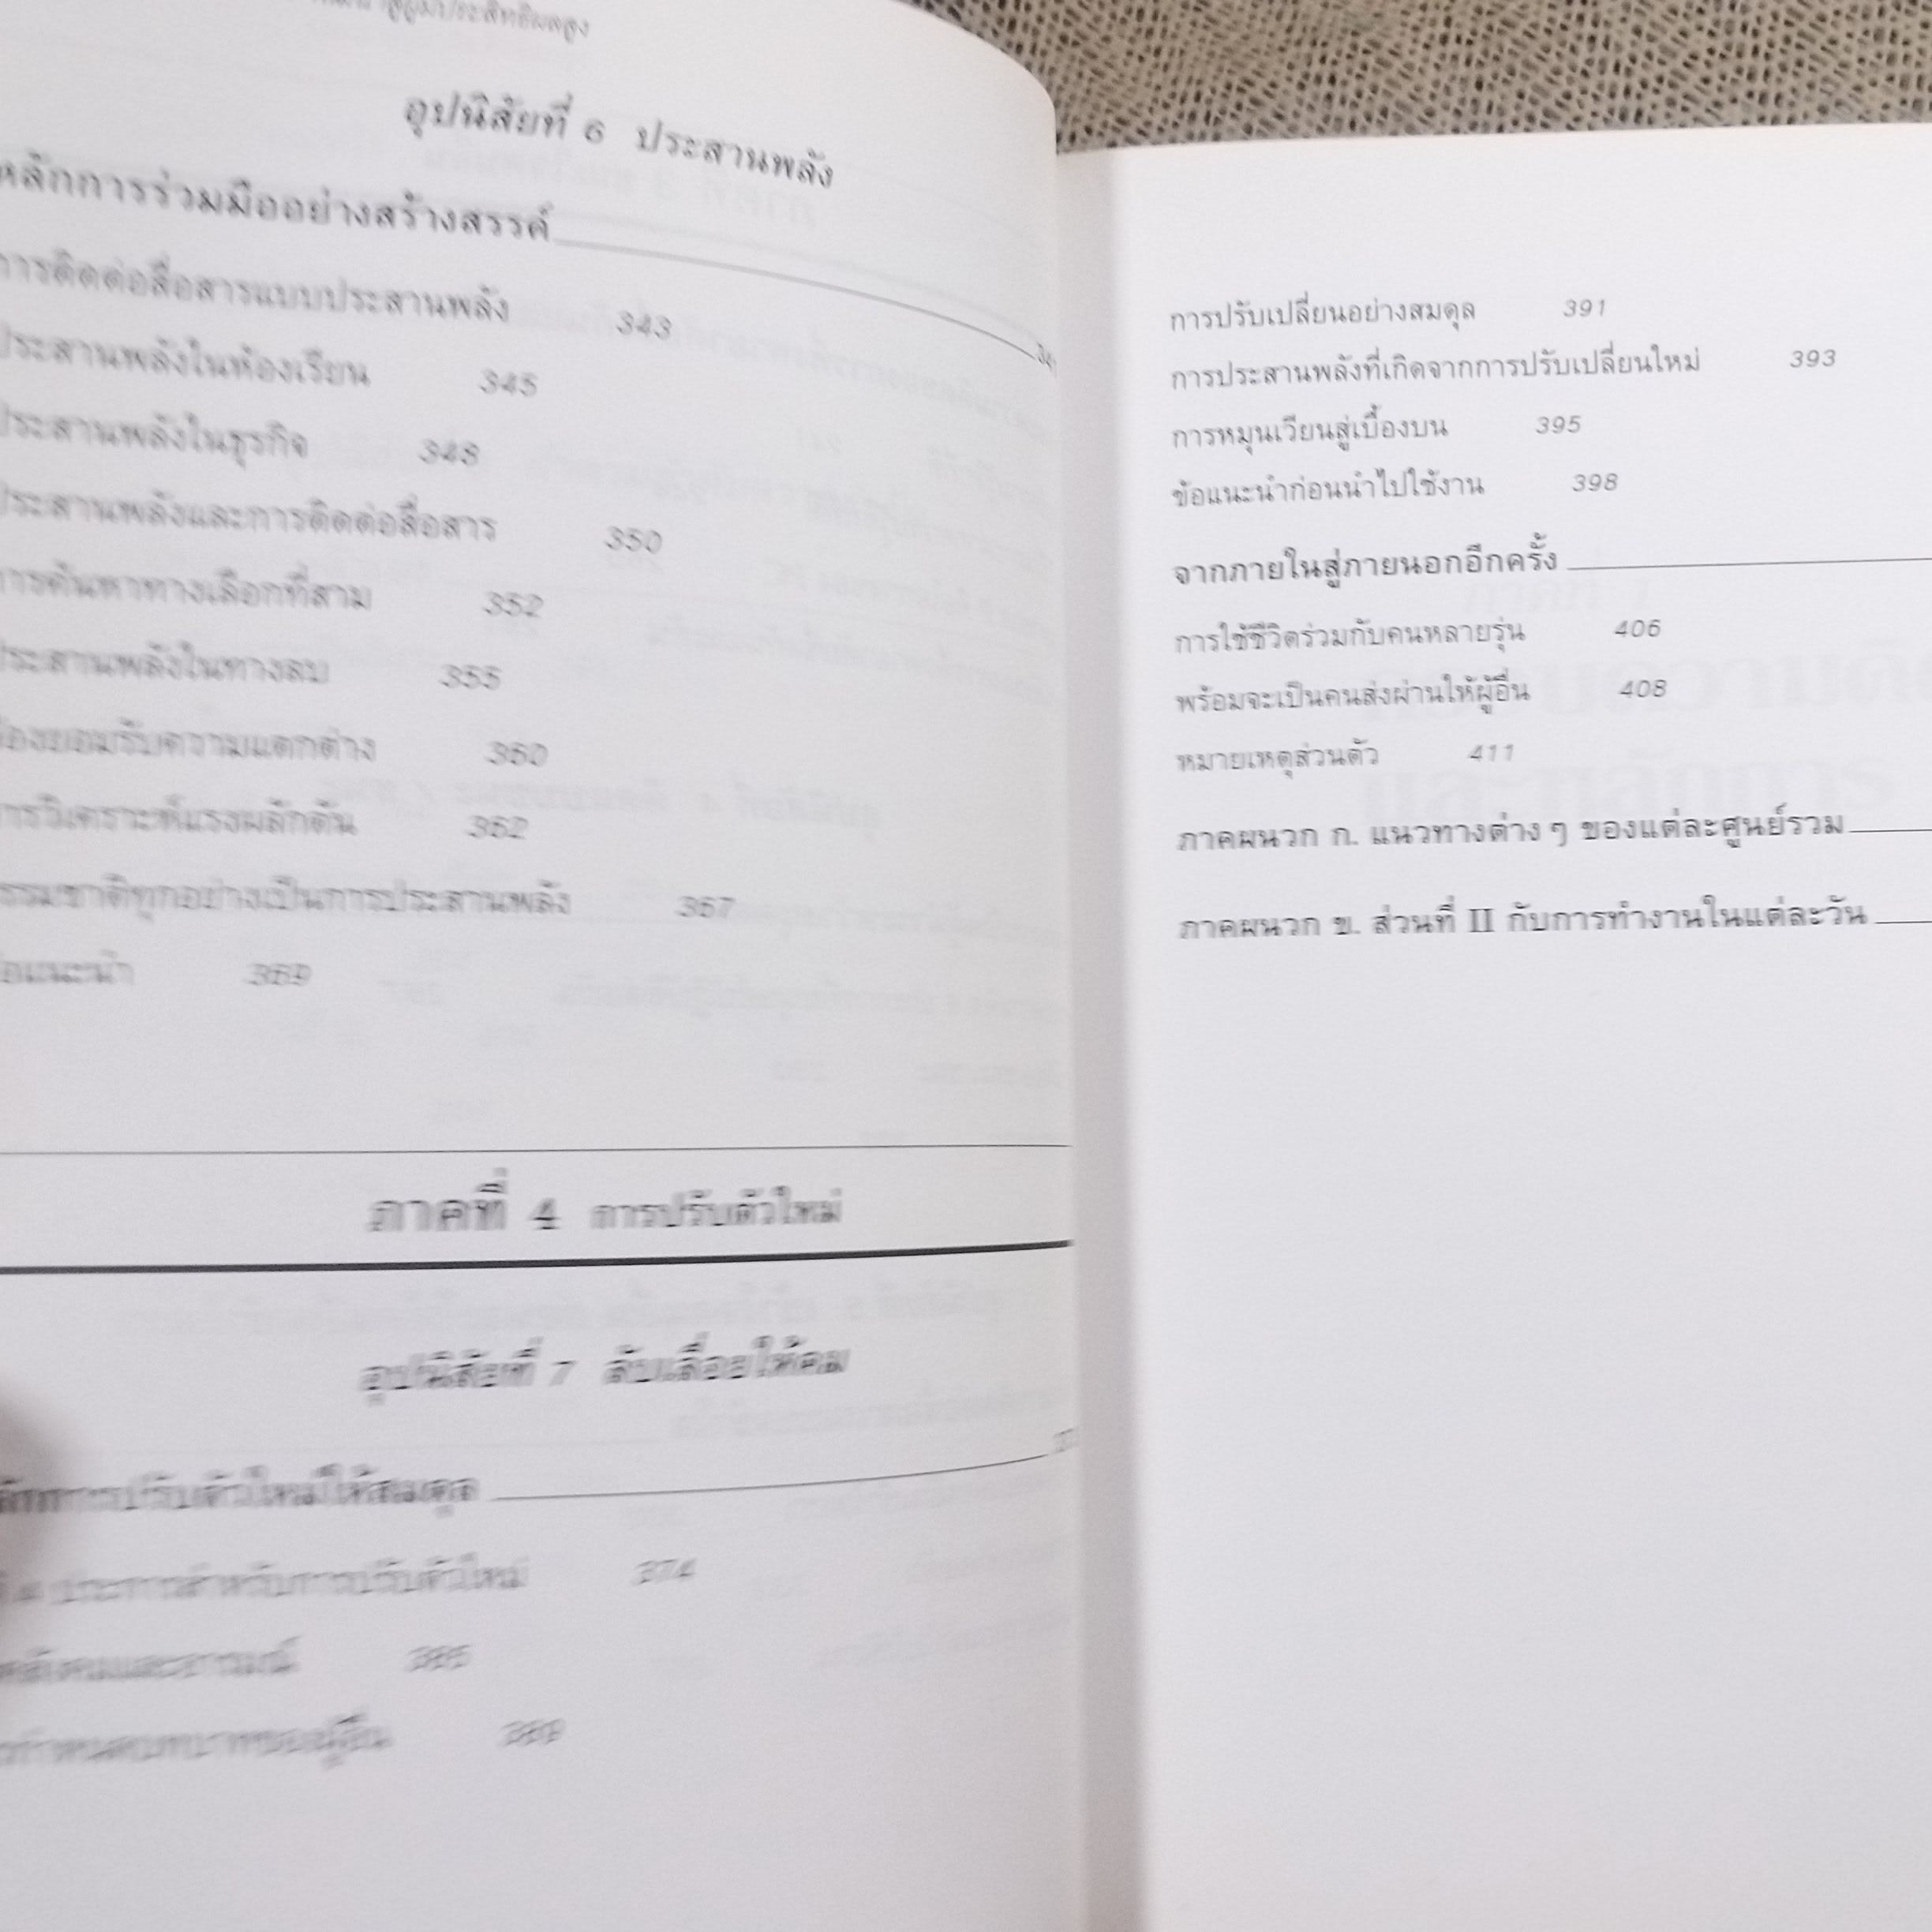 สู่ผู้มีประสิทธิผลสูง
อุปนิสัยที่ 6 ประสานพลัง
หลักการร่วมมืออย่างสร้างสรรค์
การติดต่อสื่อสารแบบประสานพลัง 343
ประสานพลังในห้องเรียน 345
ประสานพลังในธุรกิจ 348
ประสานพลังและการติดต่อสื่อสาร 350
การค้นหาทางเลือกที่สาม 352
ประสานพลังในทางลบ 355
ต้องยอมรับความแตกต่าง 360
การวิเคราะห์แรงผลักดัน 362
ธรรมชาติทุกอย่างเป็นการประสานพลัง 367
ข้อแนะนำ 369
ภาคที่ 4 การปรับตัวใหม่
อุปนิสัยที่ 7 ลับเลื่อยให้คม
หลักการปรับตัวใหม่ให้สมดุล
4 ประการสำหรับการปรับตัวใหม่ 374
สังคมและอารมณ์ 385
กำหนดบทบาทของผู้อื่น 389
การปรับเปลี่ยนอย่างสมดุล 391
การประสานพลังที่เกิดจากการปรับเปลี่ยนใหม่ 393
การหมุนเวียนสู่เบื้องบน 395
ข้อแนะนำก่อนนำไปใช้งาน 398
จากภายในสู่ภายนอกอีกครั้ง
การใช้ชีวิตร่วมกับคนหลายรุ่น 406
พร้อมจะเป็นคนส่งผ่านให้ผู้อื่น 408
หมายเหตุส่วนตัว 411
ภาคผนวก ก. แนวทางต่างๆ ของแต่ละศูนย์รวม
ภาคผนวก ข. ส่วนที่ II กับการทำงานในแต่ละวัน